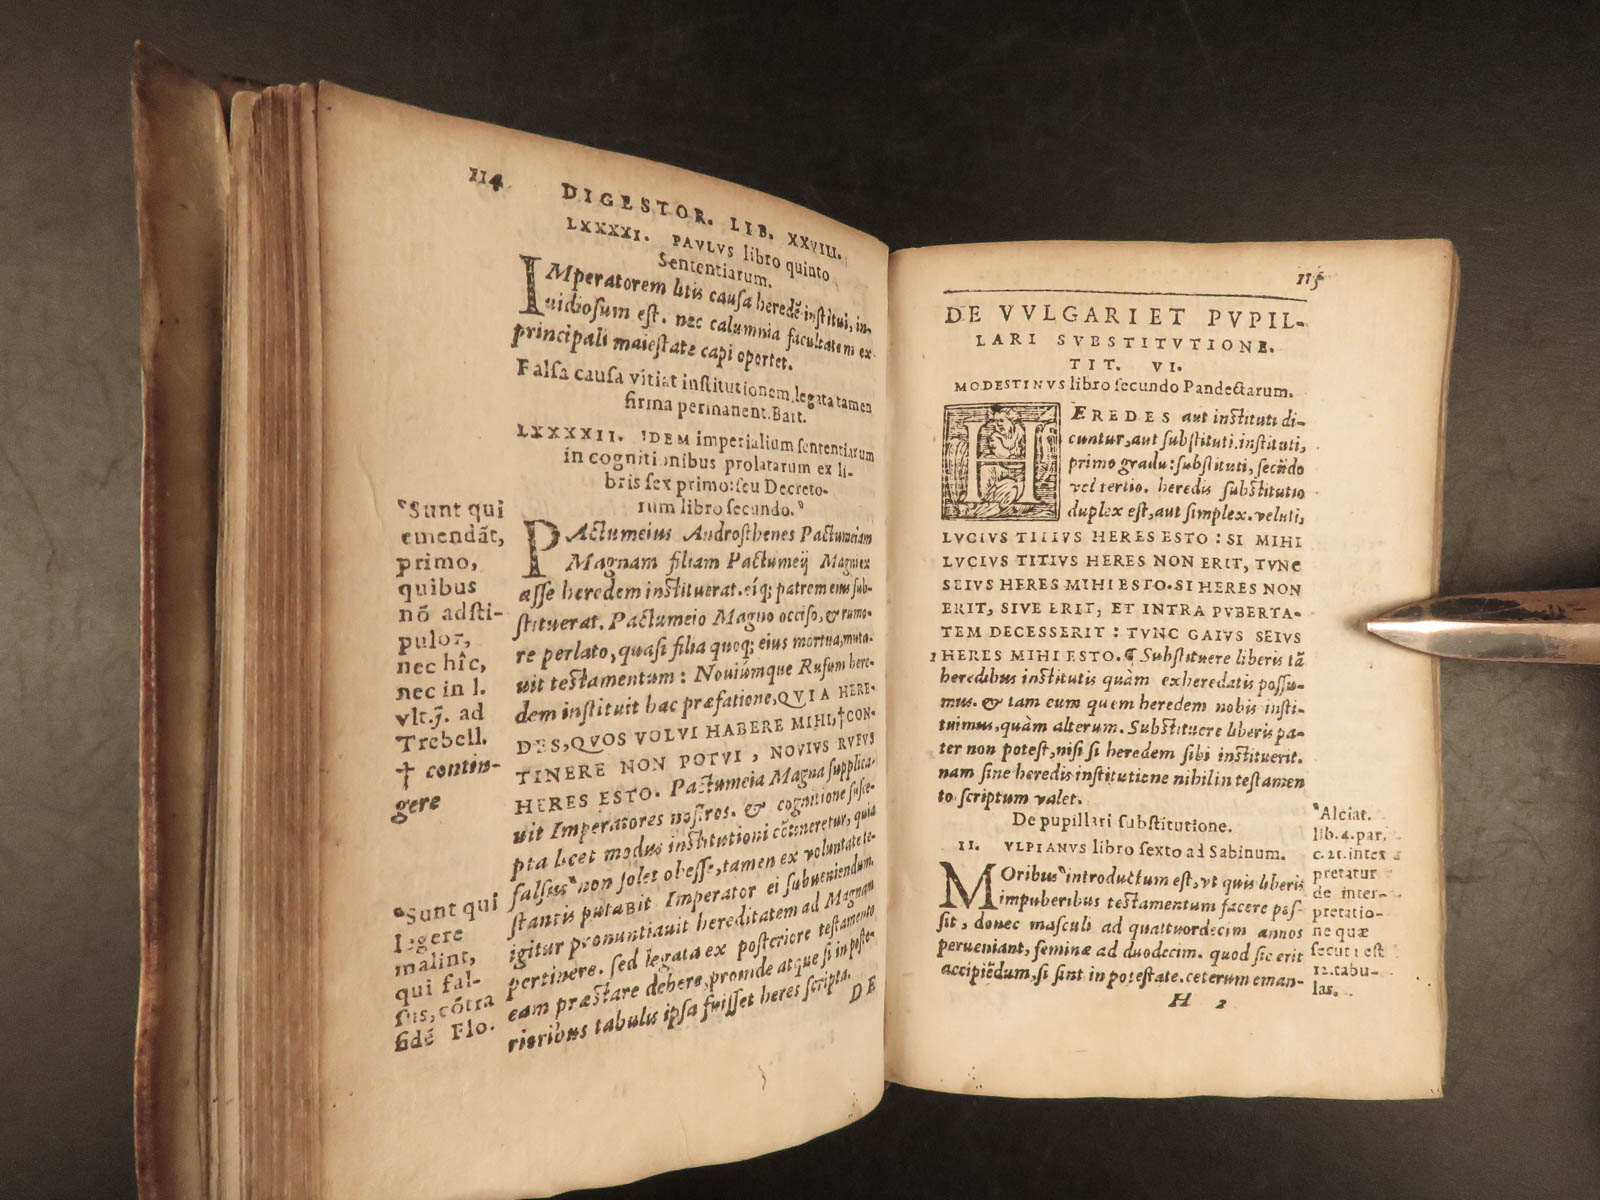 114
DIGESTOR. LIB. XXVIII.
LXXXXI. PAVLVS libro quinto
Sententiarum.
IMperatorem litis causa heredē institui, in-
uidiosum est. nec calumniæ facultatem ex
principali maiestate capi oportet.
Falsa causa vitiat institutionem, legata tamen
firma permanent. Bart.
LXXXXII. IDEM imperialium sententiarum
in cognitionibus prolatarum ex li-
bris sex primo: seu Decreto-
rum libro secundo.
PActumeius Androsthenes Pactumeiam
Magnam filiam Pactumeij Magni ex
asse heredem instituerat. eíq; patrem eius sub-
stituerat. Pactumeio Magno occiso, & rumo-
re perlato, quasi filia quoq; eius mortua, muta-
uit testamentum: Nouiúmque Rufum here-
dem instituit hac præfatione, QVIA HERE-
DES, QVOS VOLVI HABERE MIHI, †CON-
TINERE NON POTVI, NOVIVS RVFVS
HERES ESTO. Pactumeia Magna supplica-
uit Imperatores nostros. & cognitione susce-
pta licet modus institutioni cōtineretur, quia
falsus non solet obesse, tamen ex voluntate te-
stantis putauit Imperator ei subueniendum.
igitur pronuntiauit hereditatem ad Magnam
pertinere. sed legata ex posteriore testamento
eam præstare debere, proinde atque si in poste-
rioribus tabulis ipsa fuisset heres scripta.
DE
Sunt qui
emendāt,
primo,
quibus
nō adsti-
pulor,
nec hîc,
nec in l.
vlt. J. ad
Trebell.
† contin-
gere
Sunt qui
legere
malint,
qui fal-
sus, cōtra
fidē Flo.
115
DE VVLGARI ET PVPIL-
LARI SVBSTITVTIONE.
TIT. VI.
MODESTINVS libro secundo Pandectarum.
HEREDES aut instituti di-
cuntur, aut substituti. instituti,
primo gradu: substituti, secūdo
vel tertio. heredis substitutio
duplex est, aut simplex. veluti,
LVCIVS TITIVS HERES ESTO: SI MIHI
LVCIVS TITIVS HERES NON ERIT, TVNC
SEIVS HERES MIHI ESTO. SI HERES NON
ERIT, SIVE ERIT, ET INTRA PVBERTA-
TEM DECESSERIT: TVNC GAIVS SEIVS
1 HERES MIHI ESTO. ¶ Substituere liberis tā
heredibus institutis quàm exheredatis possu-
mus. & tam eum quem heredem nobis insti-
tuimus, quàm alterum. Substituere liberis pa-
ter non potest, nisi si heredem sibi instituerit.
nam sine heredis institutiene nihil in testamen
to scriptum valet.
De pupillari substitutione.
II. VLPIANVS libro sexto ad Sabinum.
MOribus introductum est, vt quis liberis
impuberibus testamentum facere pos-
sit, donec masculi ad quattuordecim annos
perueniant, feminæ ad duodecim. quod sic erit
accipiēdum, si sint in potestate. ceterum eman-
H 2
Alciat.
lib. 4. par.
c. 21. inter
pretatur
de inter-
pretatio-
ne quæ
secuta est
12. tabu-
las.